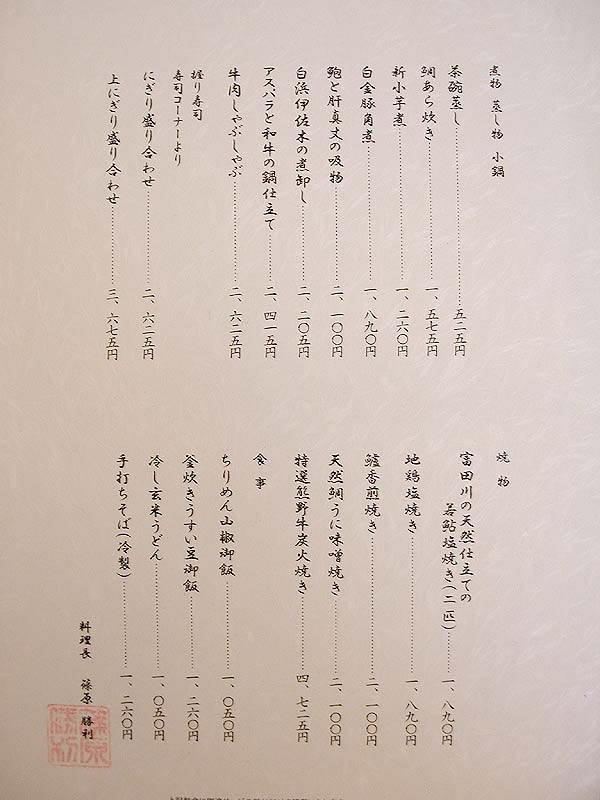 煮物 蒸し物 小鍋
茶碗蒸し……………五二五円
鯛あら炊き……………一、五七五円
新小芋煮……………一、二六〇円
白金豚角煮……………一、八九〇円
鮑と肝真丈の吸物……………二、一〇〇円
白浜伊佐木の煮卸し……………二、二〇五円
アスパラと和牛の鍋仕立て……………二、四一五円
牛肉しゃぶしゃぶ……………二、六二五円
握り寿司
寿司コーナーより
にぎり盛り合わせ……………二、六二五円
上にぎり盛り合わせ……………三、六七五円
焼物
富田川の天然仕立ての
若鮎塩焼き(二匹)……………一、八九〇円
地鶏塩焼き……………一、八九〇円
鱸香煎焼き……………二、一〇〇円
天然鯛うに味噌焼き……………二、一〇〇円
特選熊野牛炭火焼き……………四、七二五円
食事
ちりめん山椒御飯……………一、〇五〇円
釜炊きうすい豆御飯……………一、二六〇円
冷し玄米うどん……………一、〇五〇円
手打ちそば(冷製)……………一、二六〇円
料理長 篠原 勝利